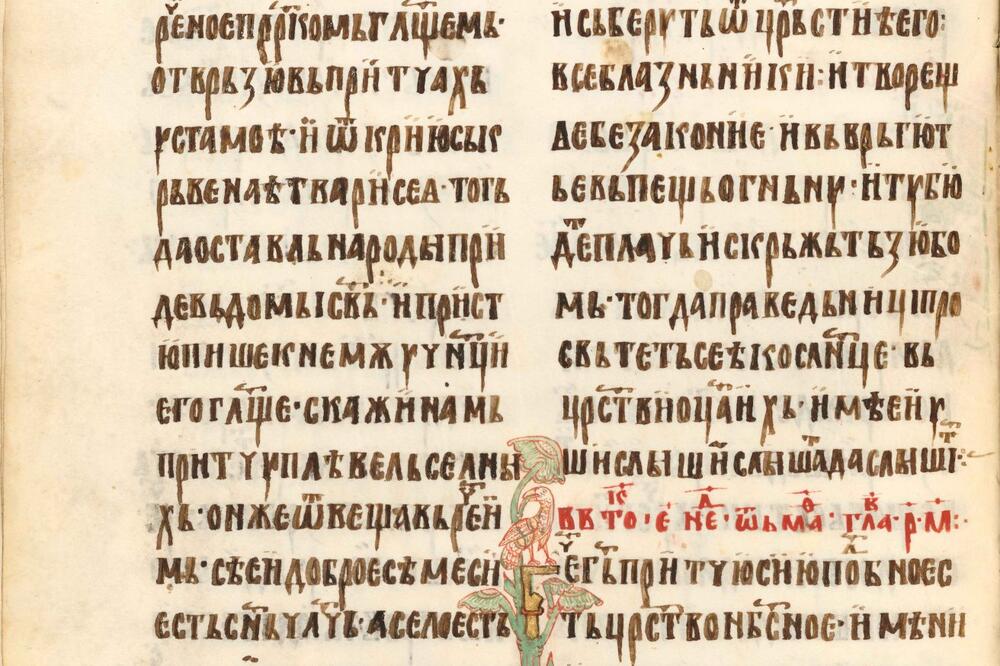 рѣноепррⷪ҇комьглщ҇емь·
отврьзꙋювьпритъчахь
ꙋстамоѣ·иѿкриюськ
рьвенаѣтварисеа·тогь
даоставльнародыпри
девьдомьісвь҇·ипріст
юпишекнемꙋжꙋчн҇ци
егоглщ҇е·скажинамь
притчꙋплѣвельселны
хь·онжеѿвещавьреⷱ҇и
мь·сѣеидоброесѣмеси
естьсн҇ьчлч҇ь·аселоесть
исьберꙋтьѿцр҇ьстиѣего:
всеблазньники:итвореш
дебезаконие·ивьврьгют
ьевьпещьогньнꙋ·итꙋбꙋ
деⷮплачьискрьжьтьзꙋбо
мь·тогдаправедьниціпро
свьтетьсеѣкослн҇це·вь
цр҇ствиоца҇ихь·имѣеиꙋ
шислышиⷮислышатⷮдаслышіⷮ:
вьвто·е҃·не·ѿьма·гла·р҃м҃:·
егьⷱ҇притчꙋюсиюпоⷣбноес
тьцр҇ствонб҇сное·имѣни